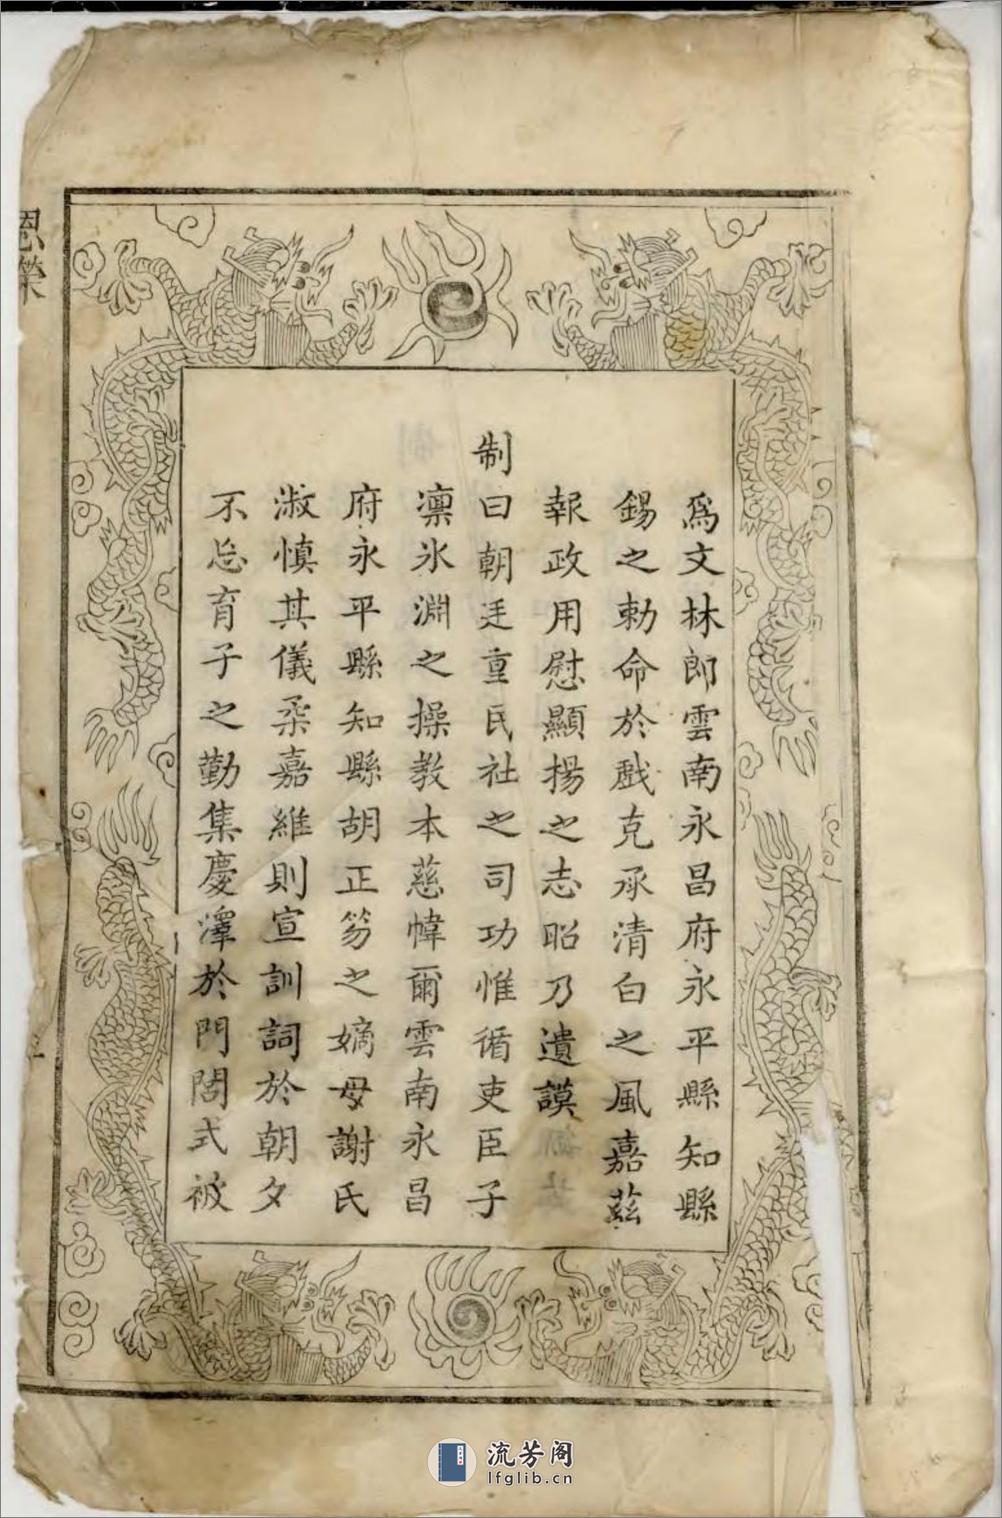 爲文林郎雲南永昌府永平縣知縣
錫之勅命於戲克承清白之風嘉茲
報政用慰顯揚之志昭乃遺謨
制曰朝廷重民社之司功惟循吏臣子
凜氷淵之操教本慈幃爾雲南永昌
府永平縣知縣胡正笏之嫡母謝氏
淑愼其儀柔嘉維則宣訓詞於朝夕
不忘育子之勤集慶澤於門閭式被
恩榮
流芳阁
lfglib.cn